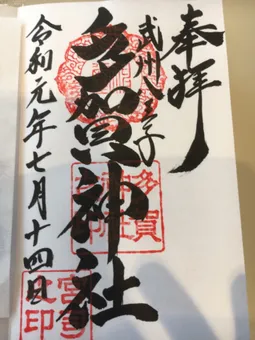 奉拝
武州八王子
多賀神社
令和元年七月十四日
多賀
神社